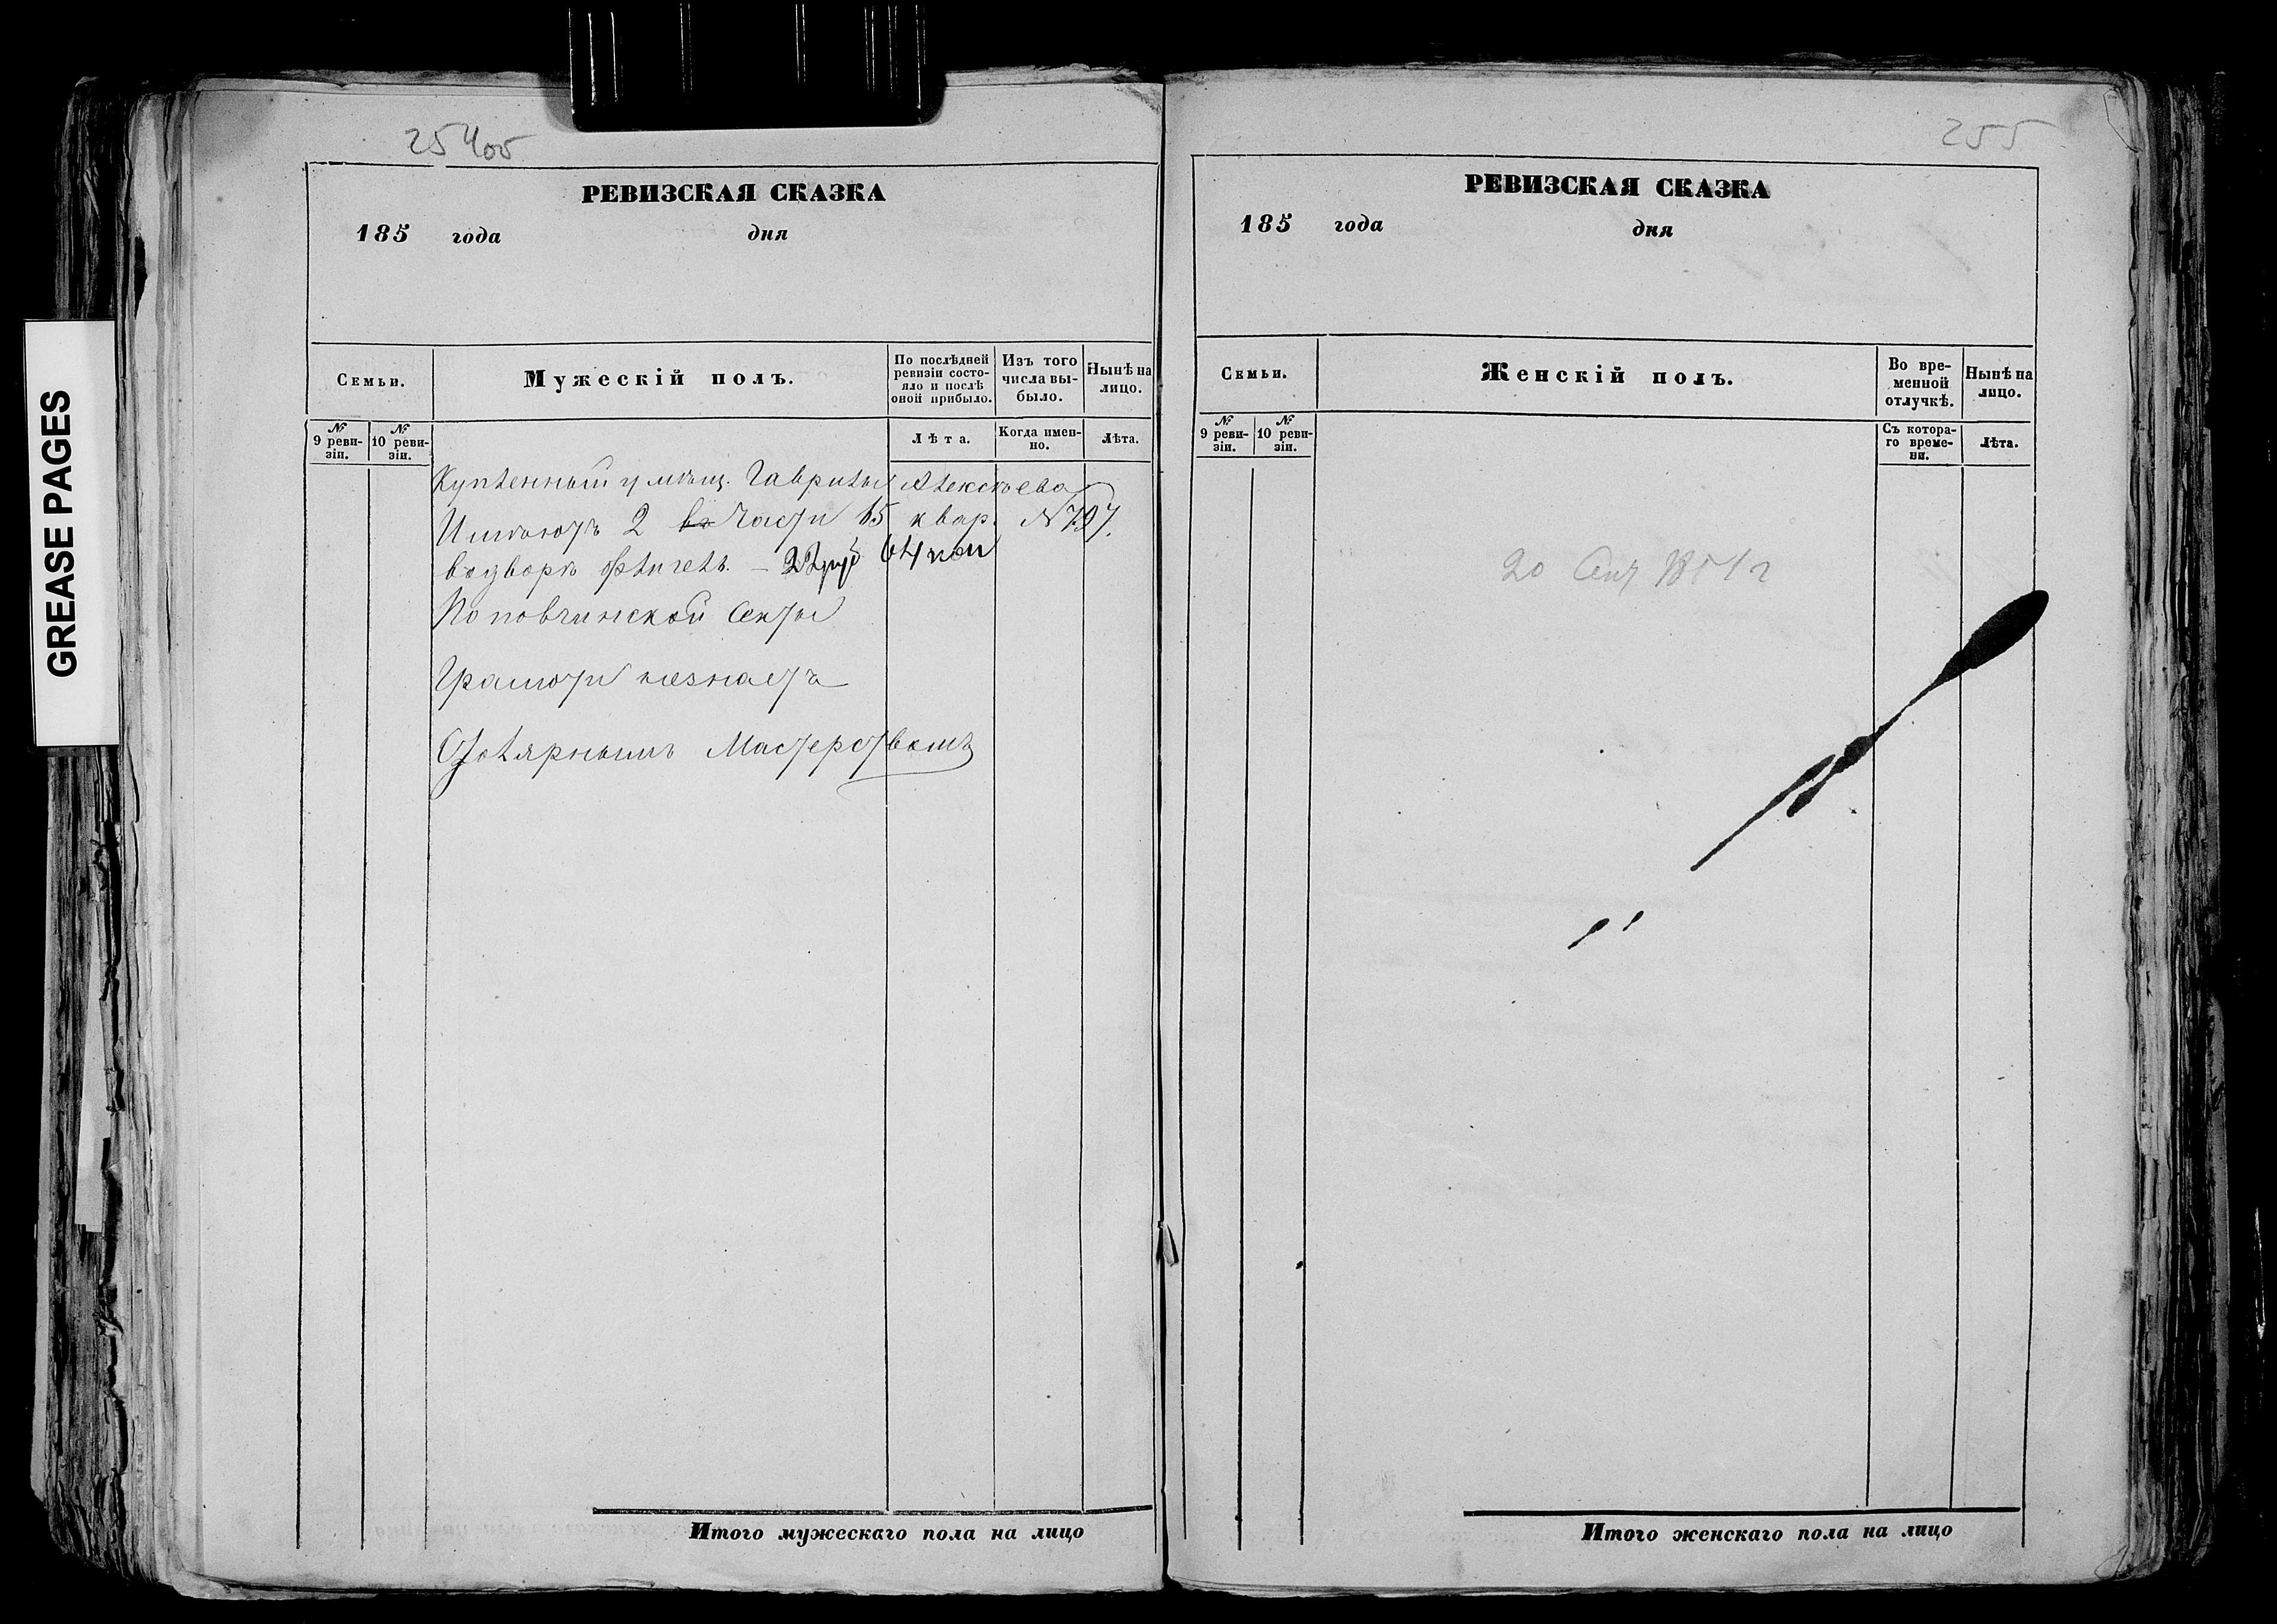 GREASE PAGES
254об
РЕВИЗСКАЯ СКАЗКА
185 года дня
Семьи.
Мужескій полъ.
По послѣдней ревизіи состояло и послѣ оной прибыло.
Изъ того числа выбыло.
Нынѣ на лицо.
№ 9 ревизіи.
№ 10 ревизіи.
Лѣта.
Когда именно.
Лѣта.
Купленный у мѣщ. Гаврилы Алексѣева
Имѣютъ 2 части 15 квар. № 797.
водворѣ флигель. – 22 руб 64 коп
Поповчинской Секты
Грамоти незнаетъ
Столярнымъ Мастерствомъ
Итого мужескаго пола на лицо
255
РЕВИЗСКАЯ СКАЗКА
185 года дня
Семьи.
Женскій полъ.
Во временной отлучкѣ.
Нынѣ на лицо.
№ 9 ревизіи.
№ 10 ревизіи.
Съ котораго времени.
Лѣта.
20 185 г
Итого женскаго пола на лицо